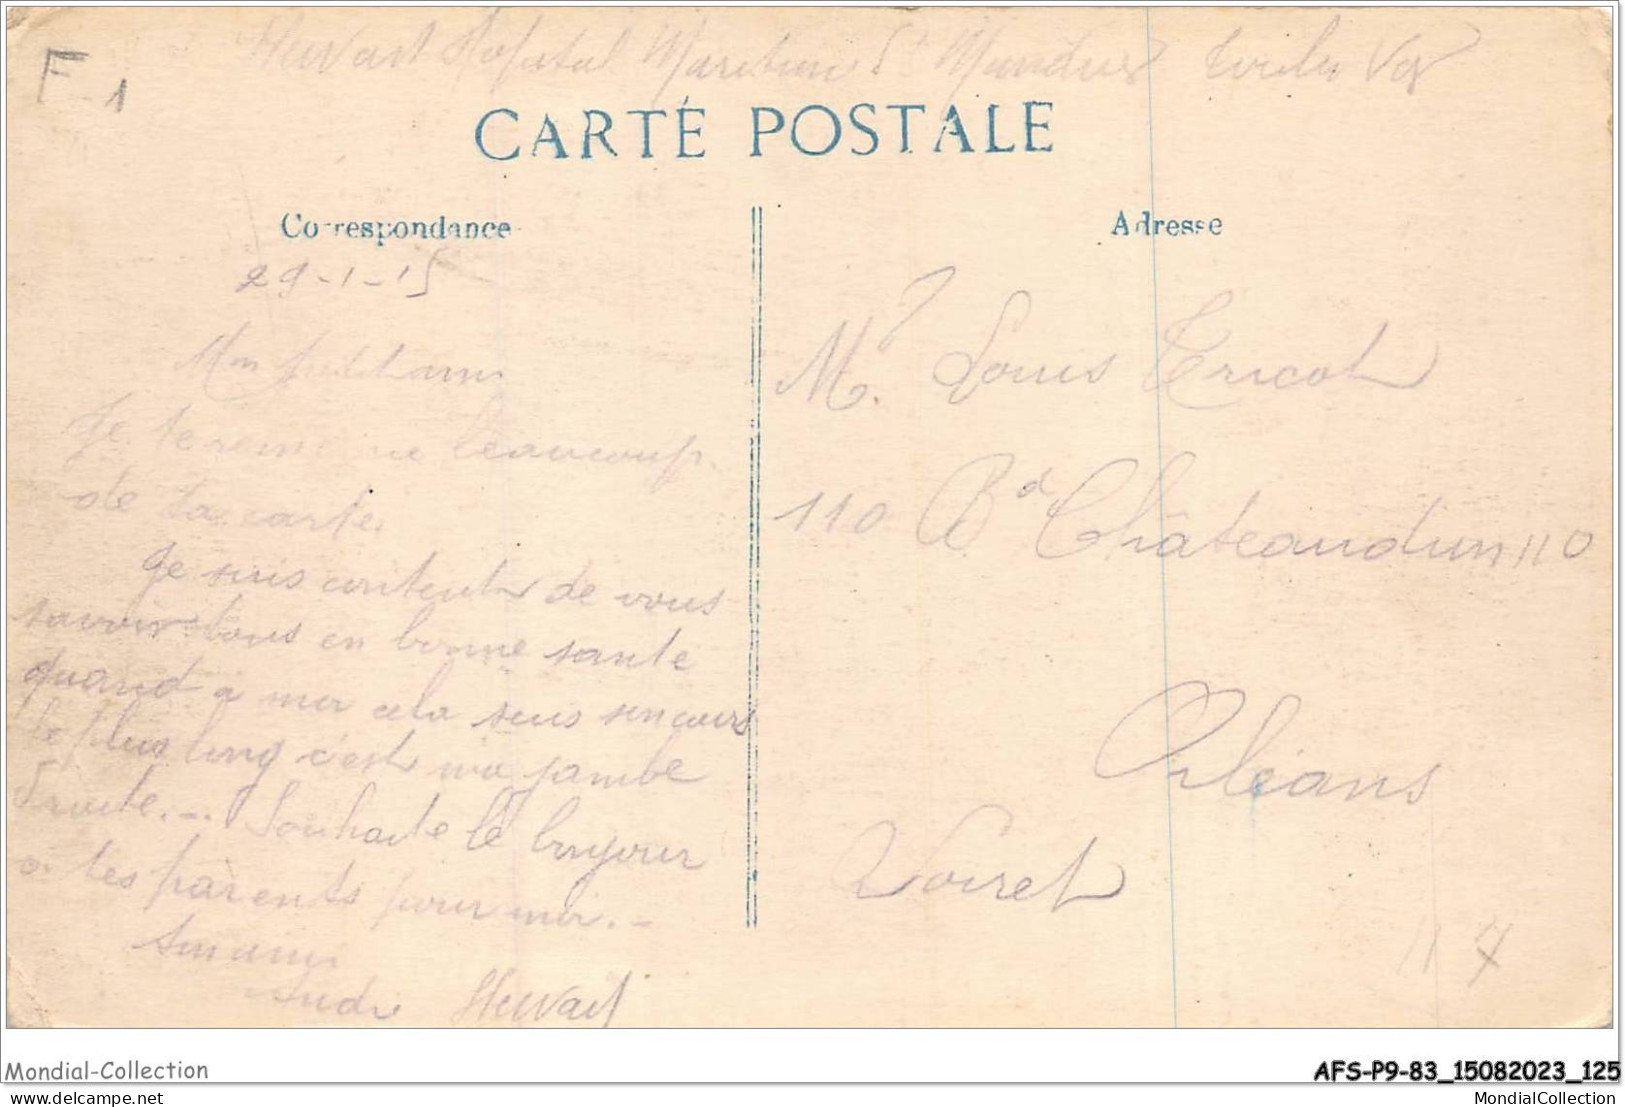 F 1
Hervait Hopital Maritime St Mandrier Toulon Var
CARTE POSTALE
Correspondance
Adresse
29-1-15
Mon petit ami
Je te remercie beaucoup
de ta carte.
Je suis content de vous
savoir tous en bonne sante
quand a moi cela suis son cours
le plus long c'est ma jambe
droite. Souhaite le bonjour
a tes parents pour moi.
Ton ami
André
Mr Louis Tricot
110 Bd Châteaudun 110
Orléans
Loiret
Mondial-Collection
AFS-P9-83_15082023_125
delcampe.net
MondialCollection